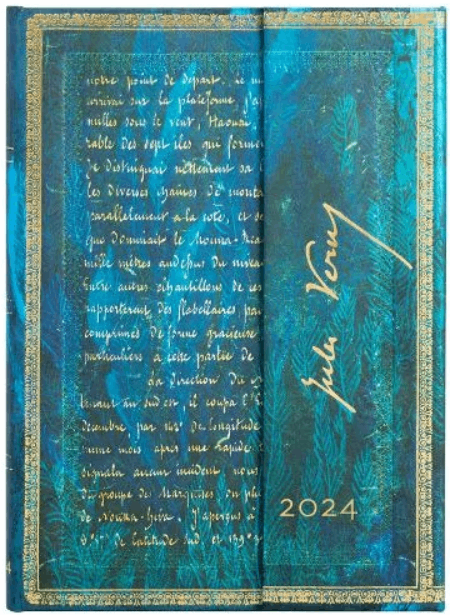 notre point de depart. Le m
arrivai sur la plateforme, j'a
milles sous le vent, Haouai,
rable des sept iles qui forme
Je distinguai nettement sa l
les diverses chaines de monta
parallelement a la cote, et se
que dominait le Mouna-Rea
mille metres audessus du nivea
Entre autres echantillons de ces
rapporterent des flabellaires pav
comprimes de forme gracieuse
particuliers a cette partie de
La direction du
lenaut au sud est, il coupa l'E
decembre, par 142° de longitude
meme mois apres une rapide
signala aucun incident, nous
du groupe des Marquises,
de Nouka-hiva. J'aperçus à
8° 57' de latitude sud, et 139° 3
Jules Verne
2024